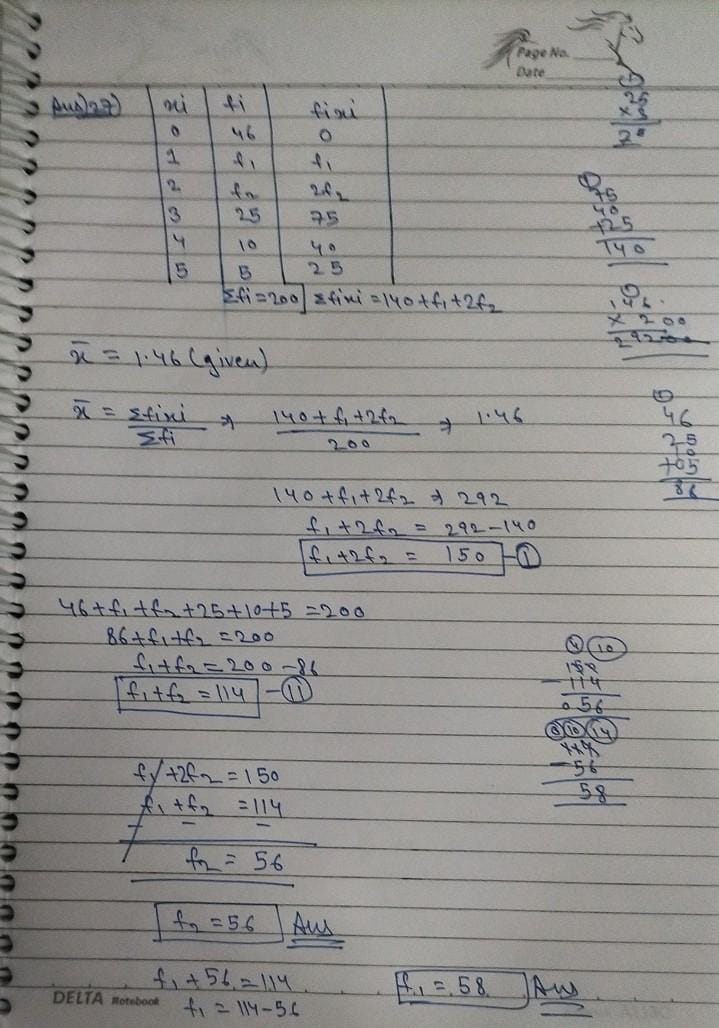 Page No.
Date
Ans)27)
xi fi fixi
0 46 0
1 f₁ f₁
2 f₂ 2f₂
3 25 75
4 10 40
5 5 25
Σfi = 200 Σfixi = 140 + f₁ + 2f₂
x̄ = 1.46 (given)
x̄ = Σfixi / Σfi ⇒ 140 + f₁ + 2f₂ / 200 ⇒ 1.46
140 + f₁ + 2f₂ ⇒ 292
f₁ + 2f₂ = 292 - 140
f₁ + 2f₂ = 150 - ①
46 + f₁ + f₂ + 25 + 10 + 5 = 200
86 + f₁ + f₂ = 200
f₁ + f₂ = 200 - 86
f₁ + f₂ = 114 - ⑪
f₁ + 2f₂ = 150
f₁ + f₂ = 114
- - -
f₂ = 56
f₂ = 56 Ans
f₁ + 56 = 114
f₁ = 114 - 56
f₁ = 58 Ans
75
40
+25
140
①
146
× 200
29200
①
46
25
10
+05
86
④ ⑩
- 114
056
⓪ ⑩ ⑭
- 56
58
DELTA Notebook